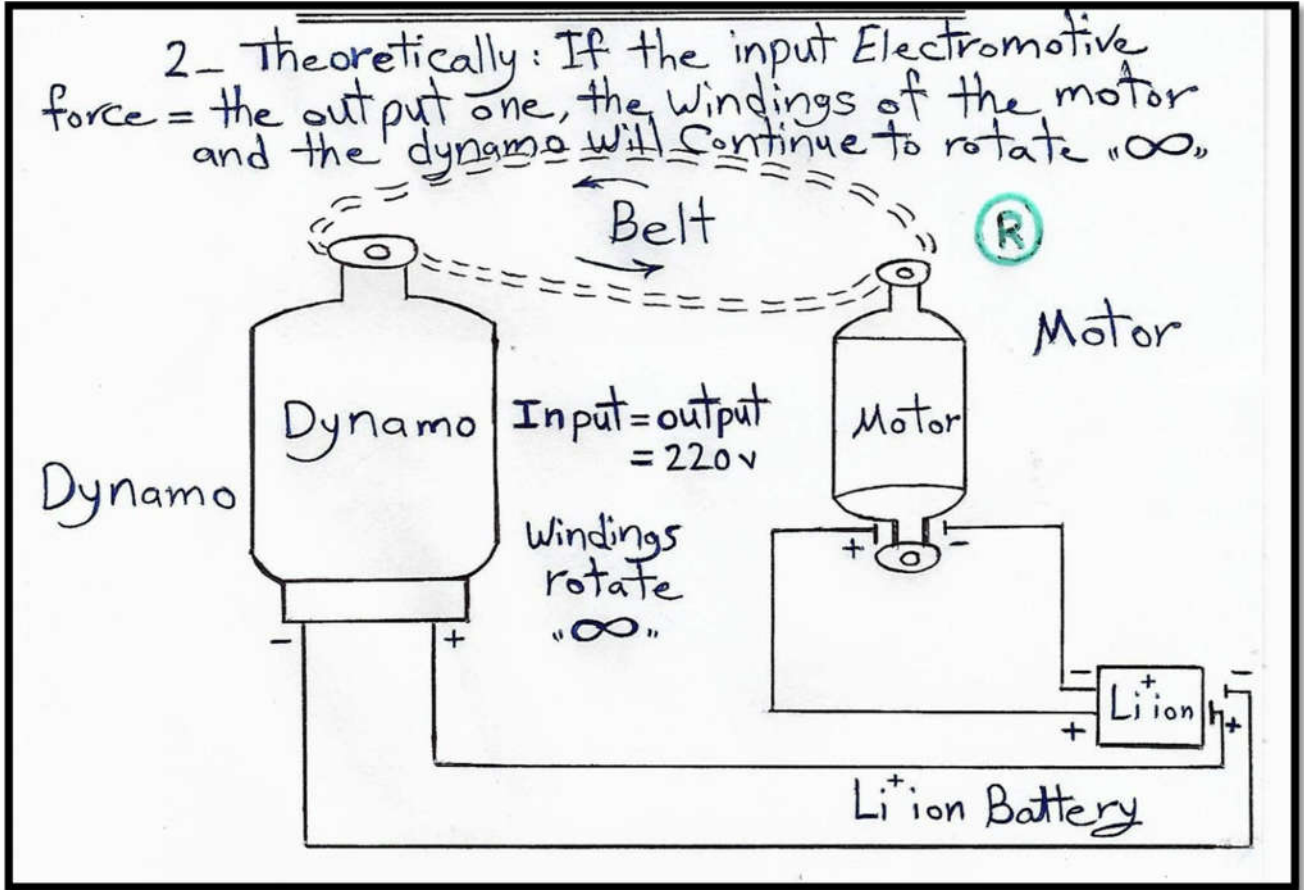 2- Theoretically: If the input Electromotive
force = the output one, the windings of the motor
and the dynamo will Continue to rotate "∞"
Belt
R
Motor
Dynamo
Input = output
= 220 v
Motor
Dynamo
Windings
rotate
"∞"
+
-
-
+
-
Li+ ion
-
+
+
Li+ ion Battery